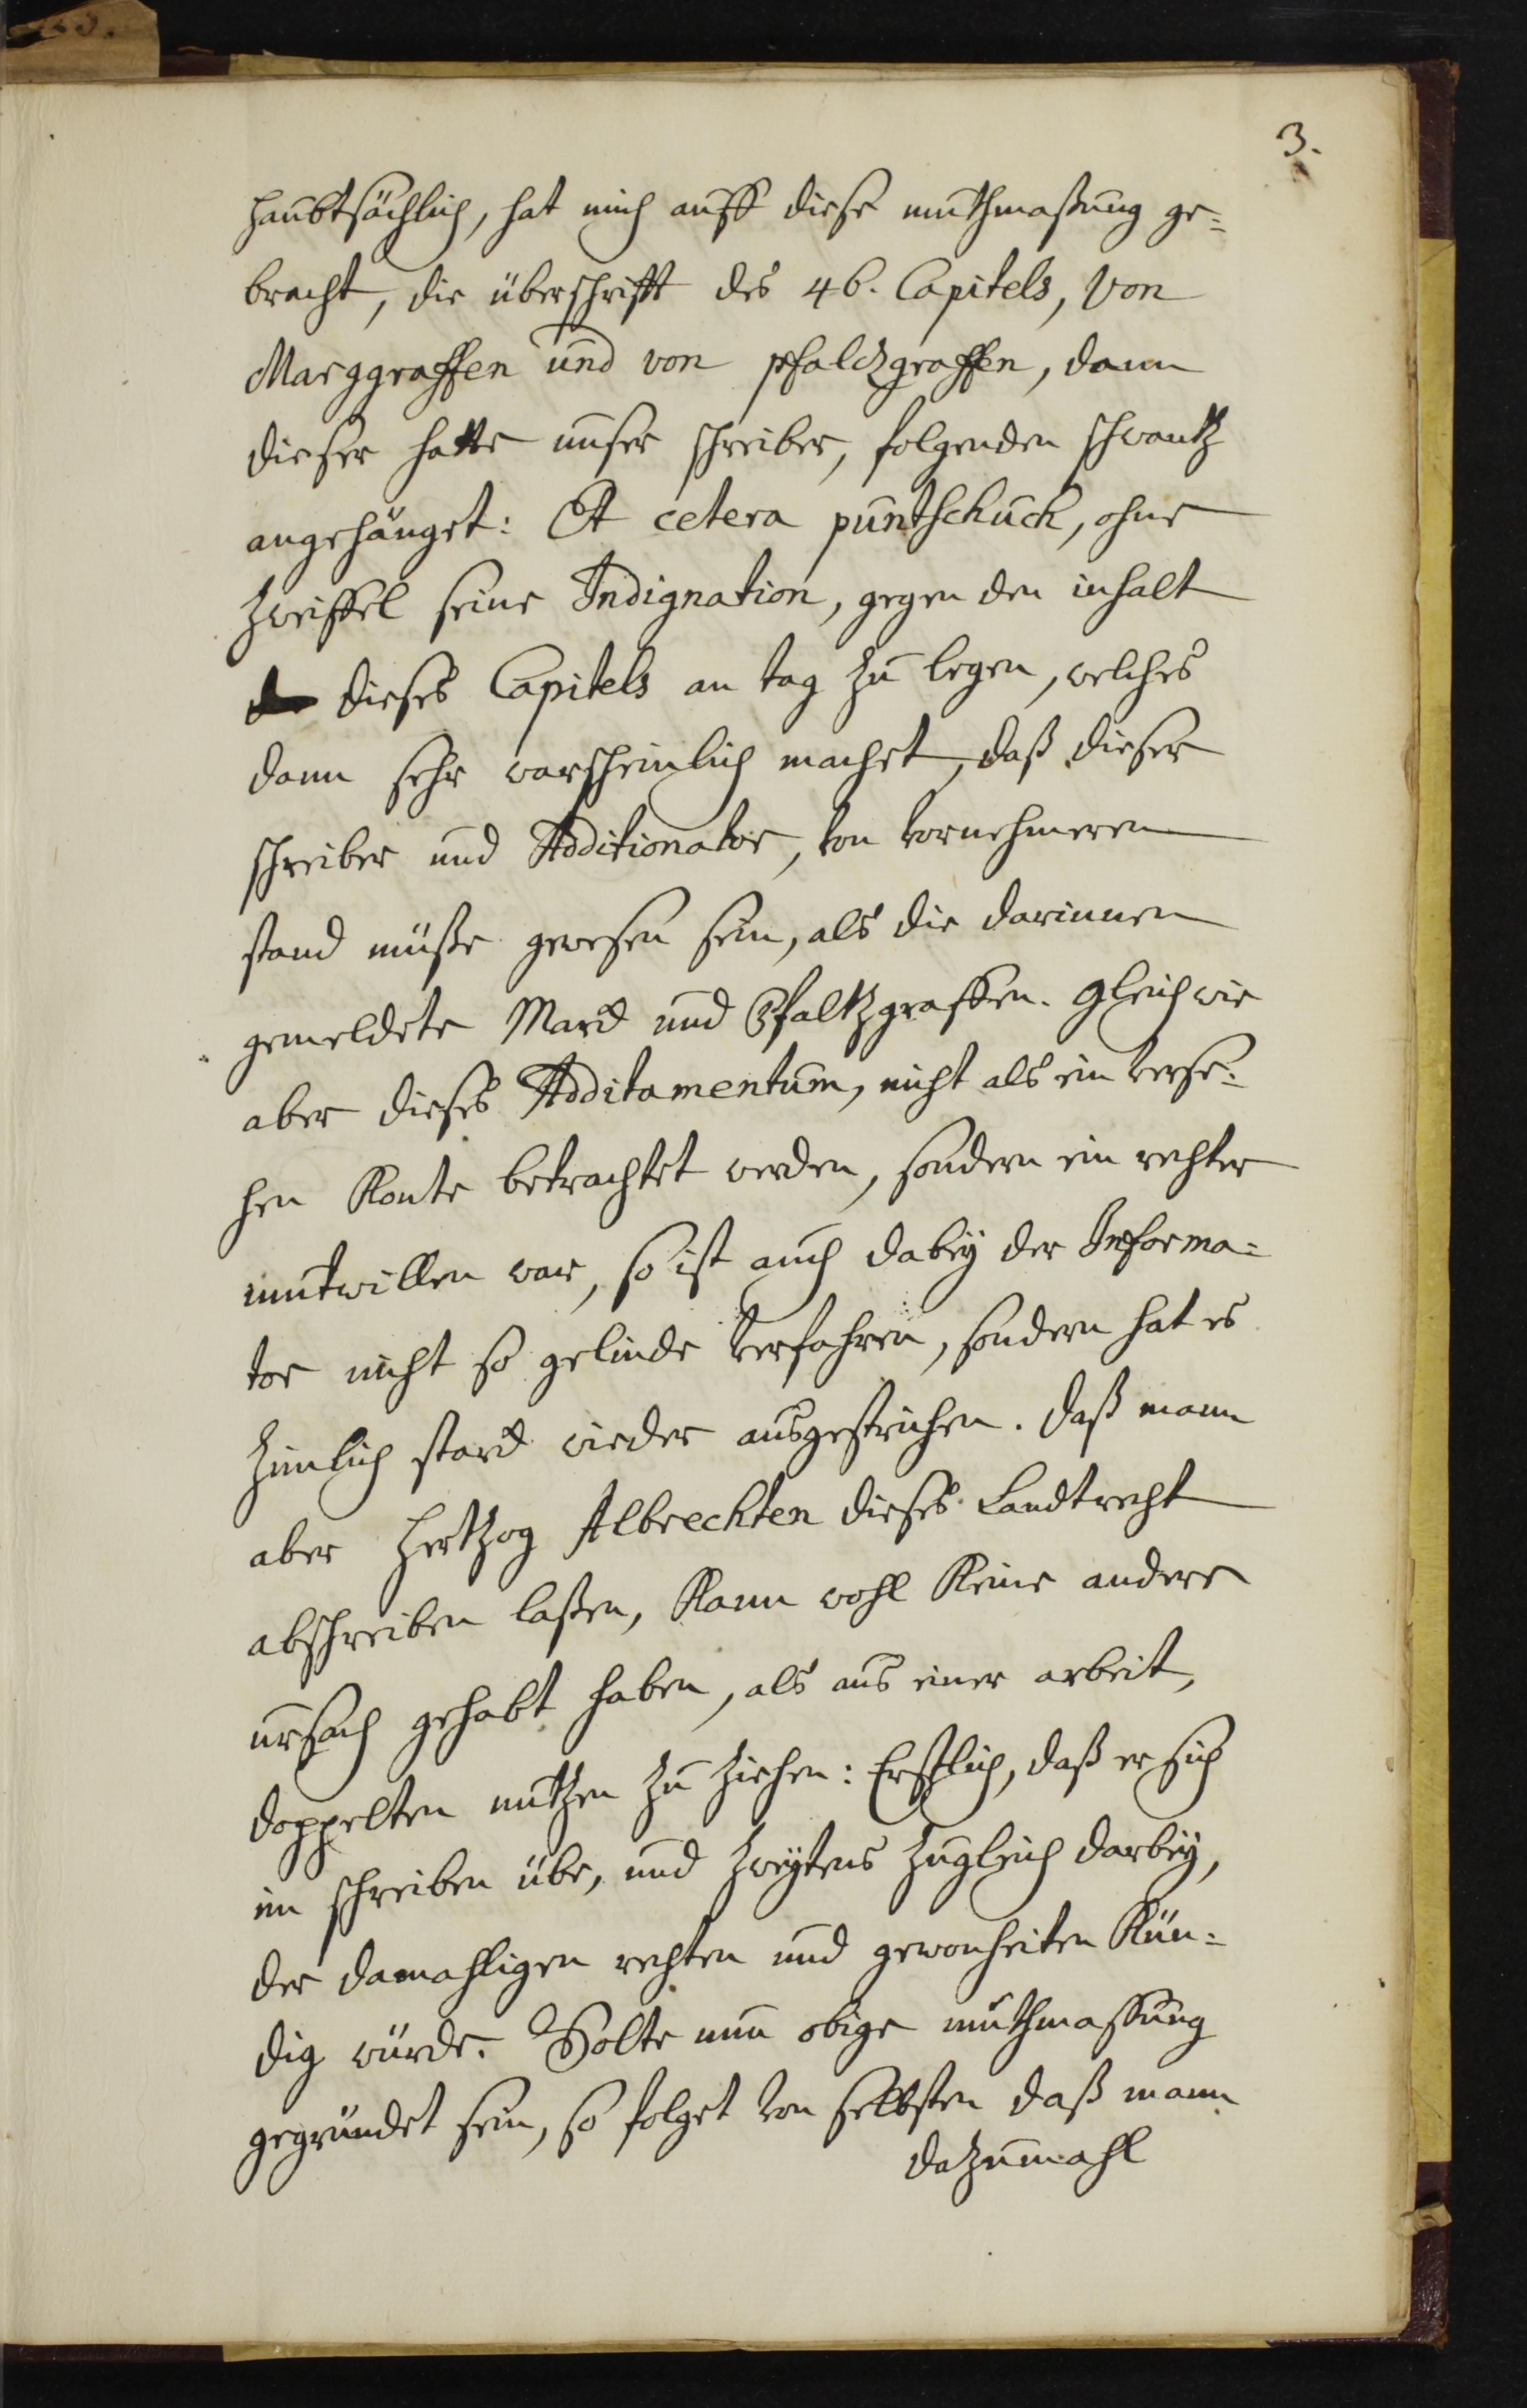 3.
haubtsächlich, hat mich auff diese muthmaßung ge=
bracht, die überschrifft des 46. Capitels, Von
Marggraffen und von pfaltzgraffen, dann
dieser hatte unser schreiber, folgenden schwantz
angehänget: Et cetera puntschuch, ohne
Zweiffel seine Indignation, gegen den inhalt
dieses Capitels an tag zu legen, welches
dann sehr warscheinlich machet, daß dieser
schreiber und Additionator, von vornehmeren
stand müße gewesen sein, als die darinnen
gemeldete Marck und Pfaltzgraffen. Gleich wie
aber dieses Additamentum, nicht als ein verse=
hen konte betrachtet werden, sondern ein rechter
mutwillen war, so ist auch dabey der Informa=
tor nicht so gelinde verfahren, sondern hat es
Zimlich starck wieder ausgestrichen. Daß mann
aber Hertzog Albrechten dieses Landtrecht
abschreiben laßen, kann wohl keine andere
ursach gehabt haben, als aus einer arbeit,
doppelten nutzen zu ziehen: Erstlich, daß er sich
im schreiben übe, und Zweytens Zugleich darbey,
der damahligen rechten und gewonheiten kün=
dig würde. Solte nun obige muthmassung
gegründet sein, so folget von selbsten daß mann
dazumahl